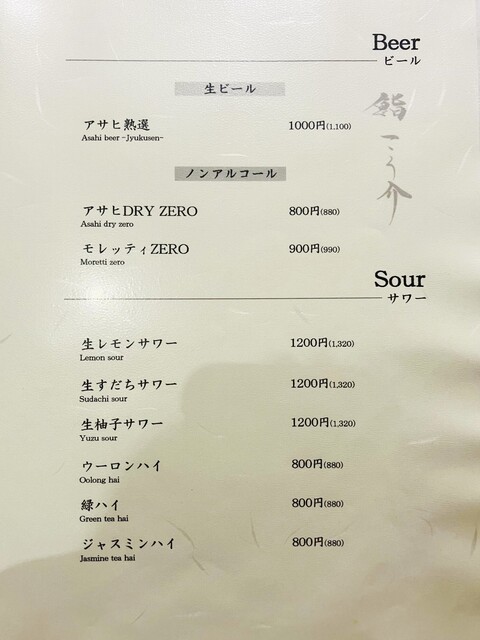 Beer
ビール
生ビール
アサヒ熟選 1000円(1,100)
Asahi beer -Jyukusen-
ノンアルコール
アサヒDRY ZERO 800円(880)
Asahi dry zero
モレッティZERO 900円(990)
Moretti zero
鮨 こう介
Sour
サワー
生レモンサワー 1200円(1,320)
Lemon sour
生すだちサワー 1200円(1,320)
Sudachi sour
生柚子サワー 1200円(1,320)
Yuzu sour
ウーロンハイ 800円(880)
Oolong hai
緑ハイ 800円(880)
Green tea hai
ジャスミンハイ 800円(880)
Jasmine tea hai